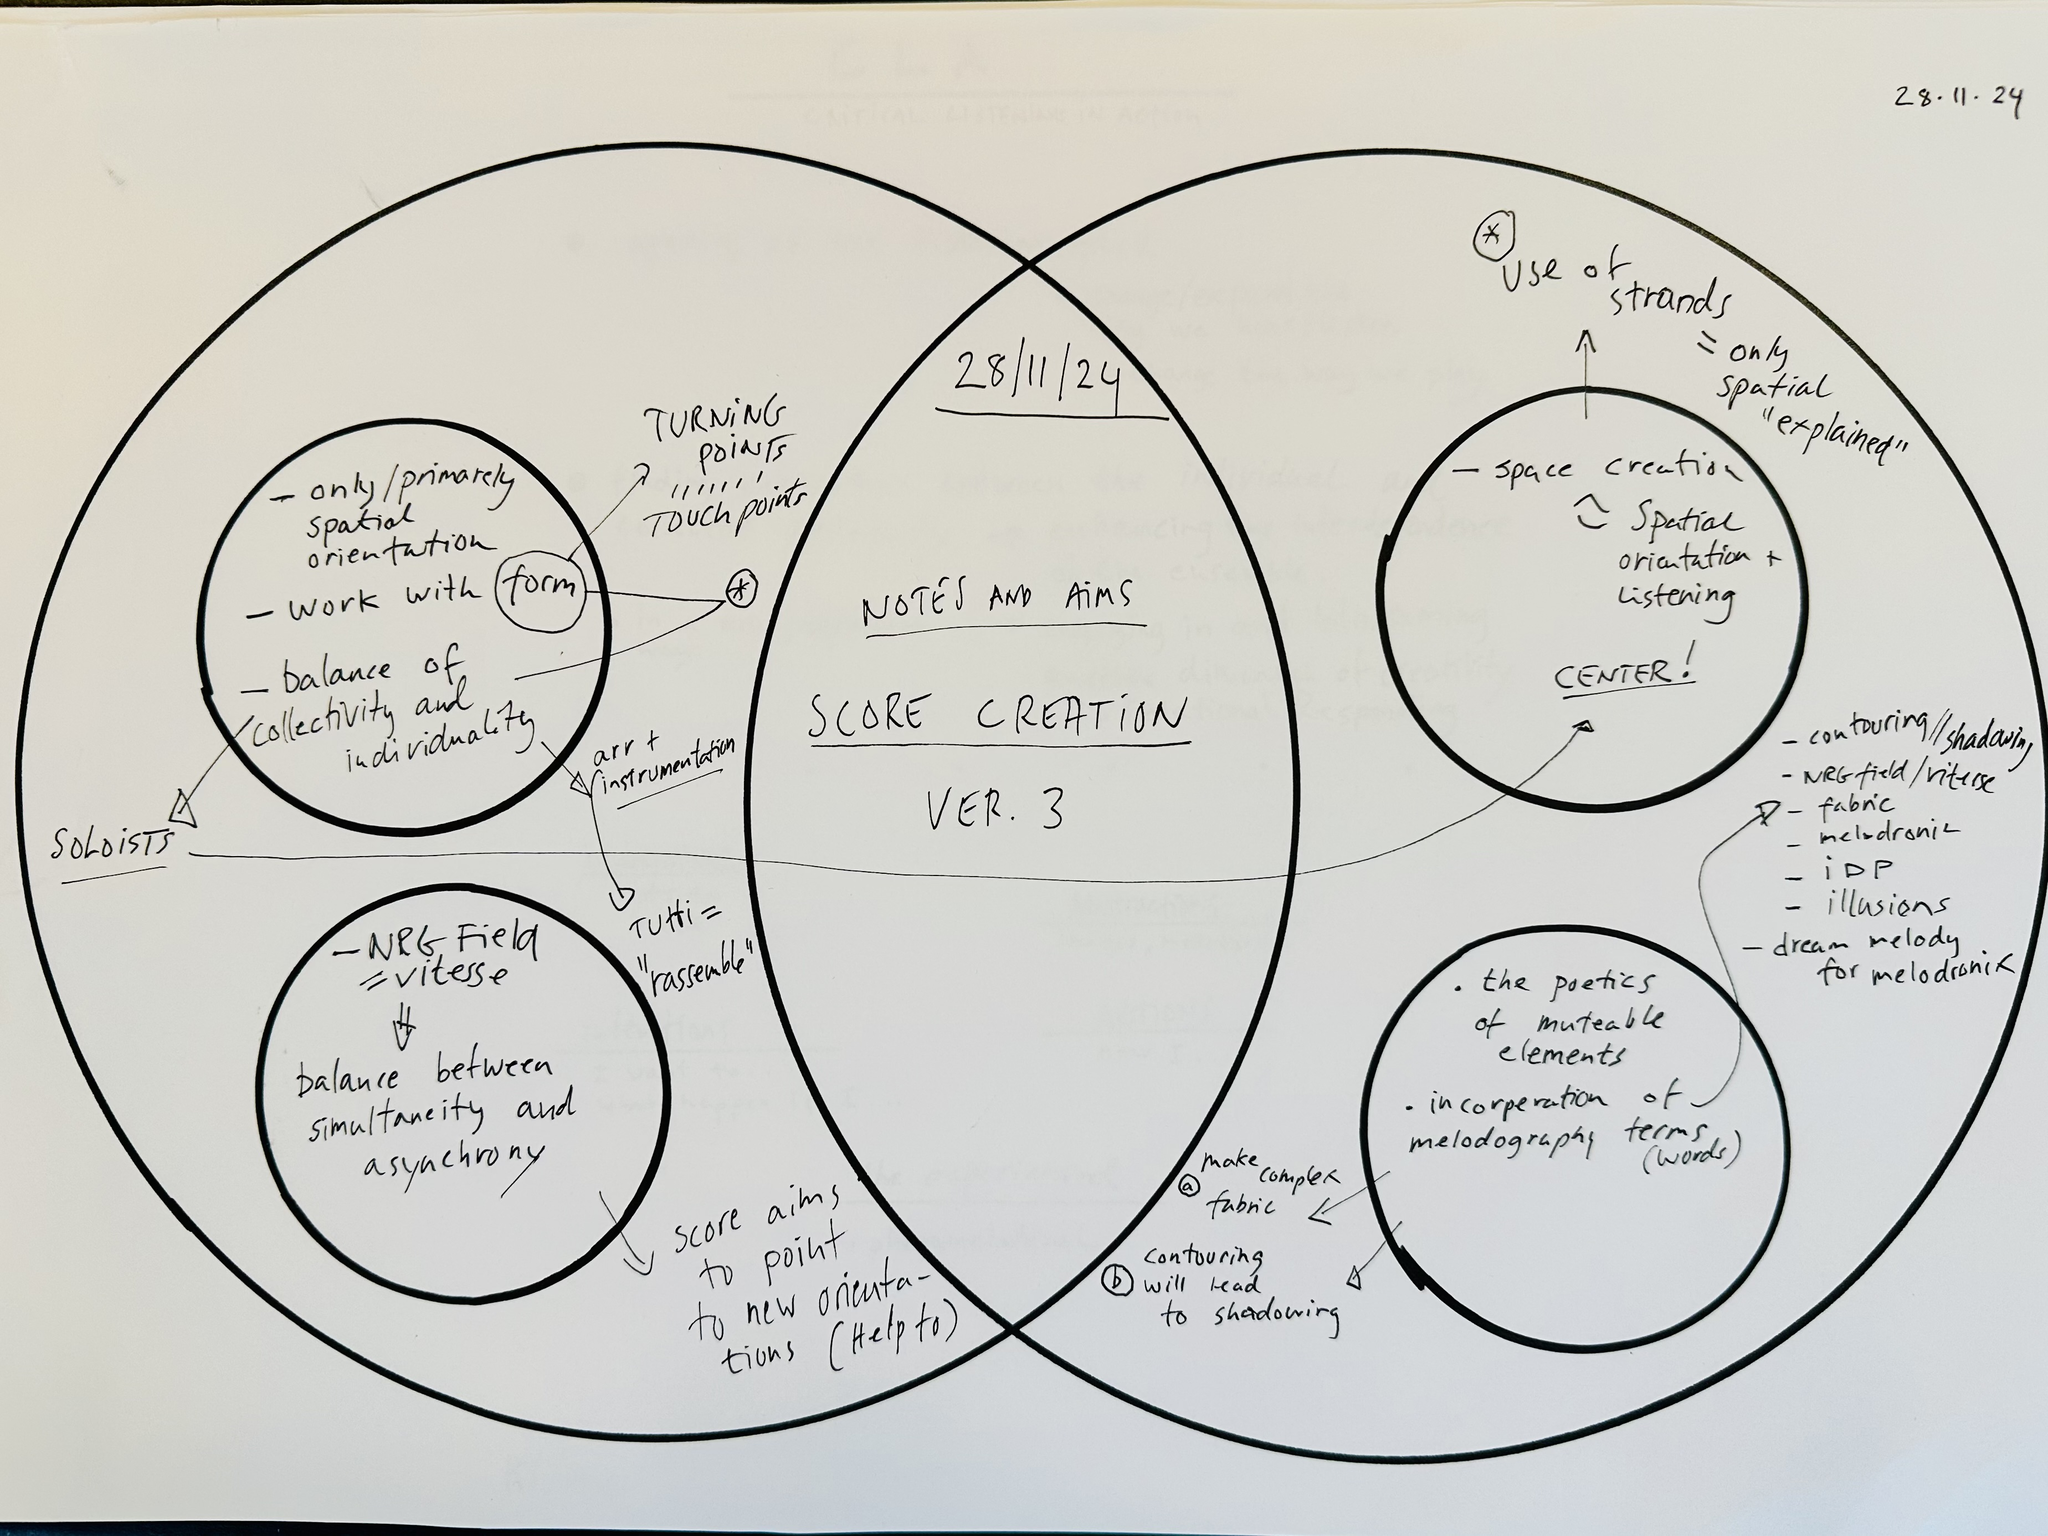 28.11.24
28/11/24
NOTES AND AIMS
SCORE CREATION
VER. 3
- only/primarely
spatial
orientation
- work with form
- balance of
collectivity and
individuality
TURNING
POINTS
TOUCH points
*
arr +
instrumentation
SOLOISTS
TUTTI =
"rassemble"
- NRG Field
= vitesse
balance between
simultaneity and
asynchrony
score aims
to point
to new orienta-
tions (Help to)
*
use of
strands
= only
spatial
"explained"
- space creation
Spatial
orientation +
Listening
CENTER!
- contouring//shadowing
- NRG field/vitesse
- fabric
- melodronix
- iDP
- illusions
- dream melody
for melodronix
. the poetics
of muteable
elements
. incorperation of
melodography terms
(words)
a make complex
fabric
b contouring
will lead
to shadowing